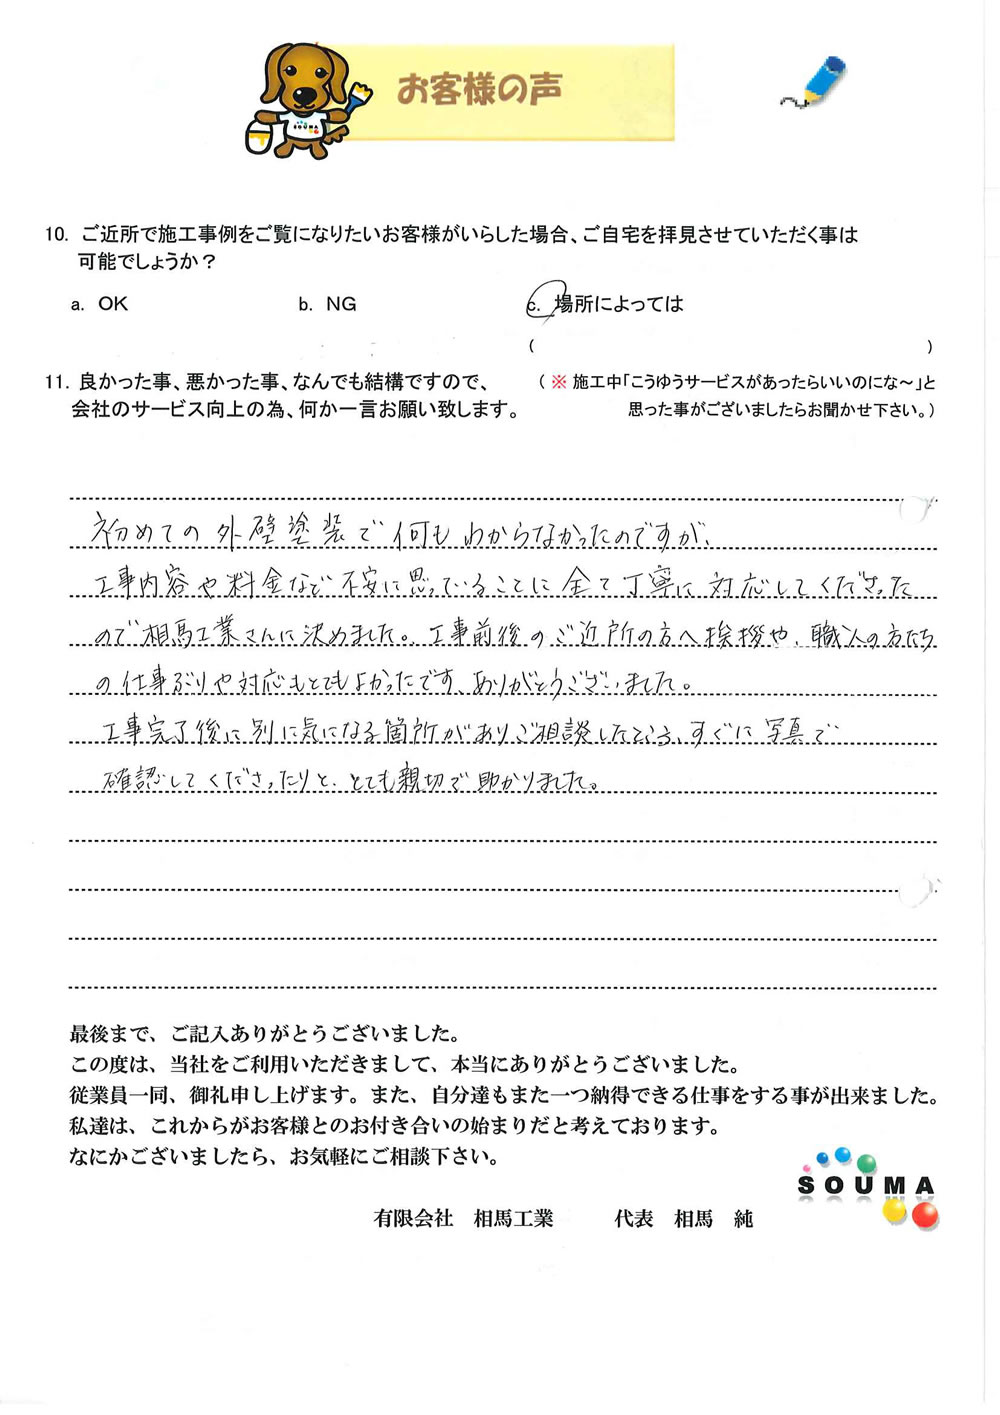 お客様の声
SOUMA
10. ご近所で施工事例をご覧になりたいお客様がいらした場合、ご自宅を拝見させていただく事は
可能でしょうか？
a. OK b. NG c. 場所によっては
( )
11. 良かった事、悪かった事、なんでも結構ですので、 (※ 施工中「こうゆうサービスがあったらいいのにな～」と
会社のサービス向上の為、何か一言お願い致します。 思った事がございましたらお聞かせ下さい。)
初めての外壁塗装で何もわからなかったのですが、
工事内容や料金など不安に思っていることに全て丁寧に対応してくださった
ので相馬工業さんに決めました。工事前後のご近所の方へ挨拶や、職人の方たち
の仕事ぶりや対応もとてもよかったです、ありがとうございました。
工事完了後に別に気になる箇所がありご相談したところ、すぐに写真で
確認してくださったりと、とても親切で助かりました。
最後まで、ご記入ありがとうございました。
この度は、当社をご利用いただきまして、本当にありがとうございました。
従業員一同、御礼申し上げます。また、自分達もまた一つ納得できる仕事をする事が出来ました。
私達は、これからがお客様とのお付き合いの始まりだと考えております。
なにかございましたら、お気軽にご相談下さい。
SOUMA
有限会社 相馬工業 代表 相馬 純